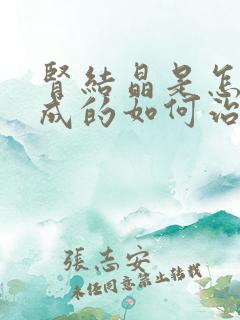 腎結晶是怎
成的如何治
張志安
未經同意禁止轉載